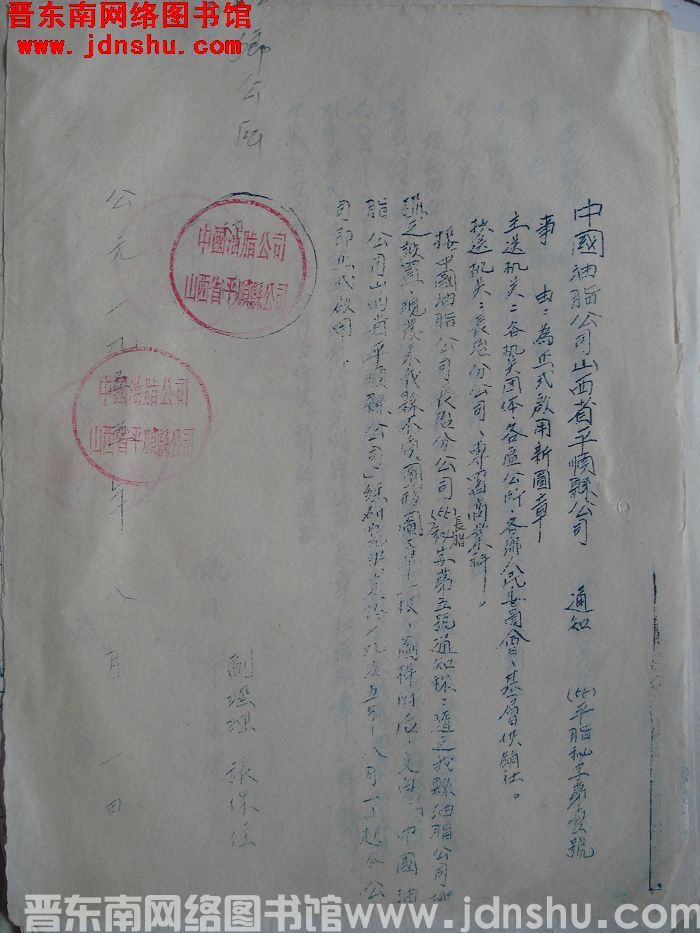 晋东南网络图书馆
www.jdnshu.com
中國油脂公司山西省平順縣公司 通知 (55)平脂秘字第壹號
事 由：為正式啟用新圖章
主送机关：各机关团体、各區公所、各鄉人民委員會、基層供銷社。
抄送机关：長治分公司、專署商業科。
接中國油脂公司長治分公司(55)長脂秘字第五號通知稱：
縣油脂公司
設置，現發來我縣
中國油
脂公司山西省平順縣公司」
一九五五年八月一日起
公
司即正式啟用。
副經理 張保住
公元一九五五年八月一日
鄉公所
中國油脂公司
山西省平順縣公司
中國油脂公司
山西省平順縣公司
晋东南网络图书馆 www.jdnshu.com